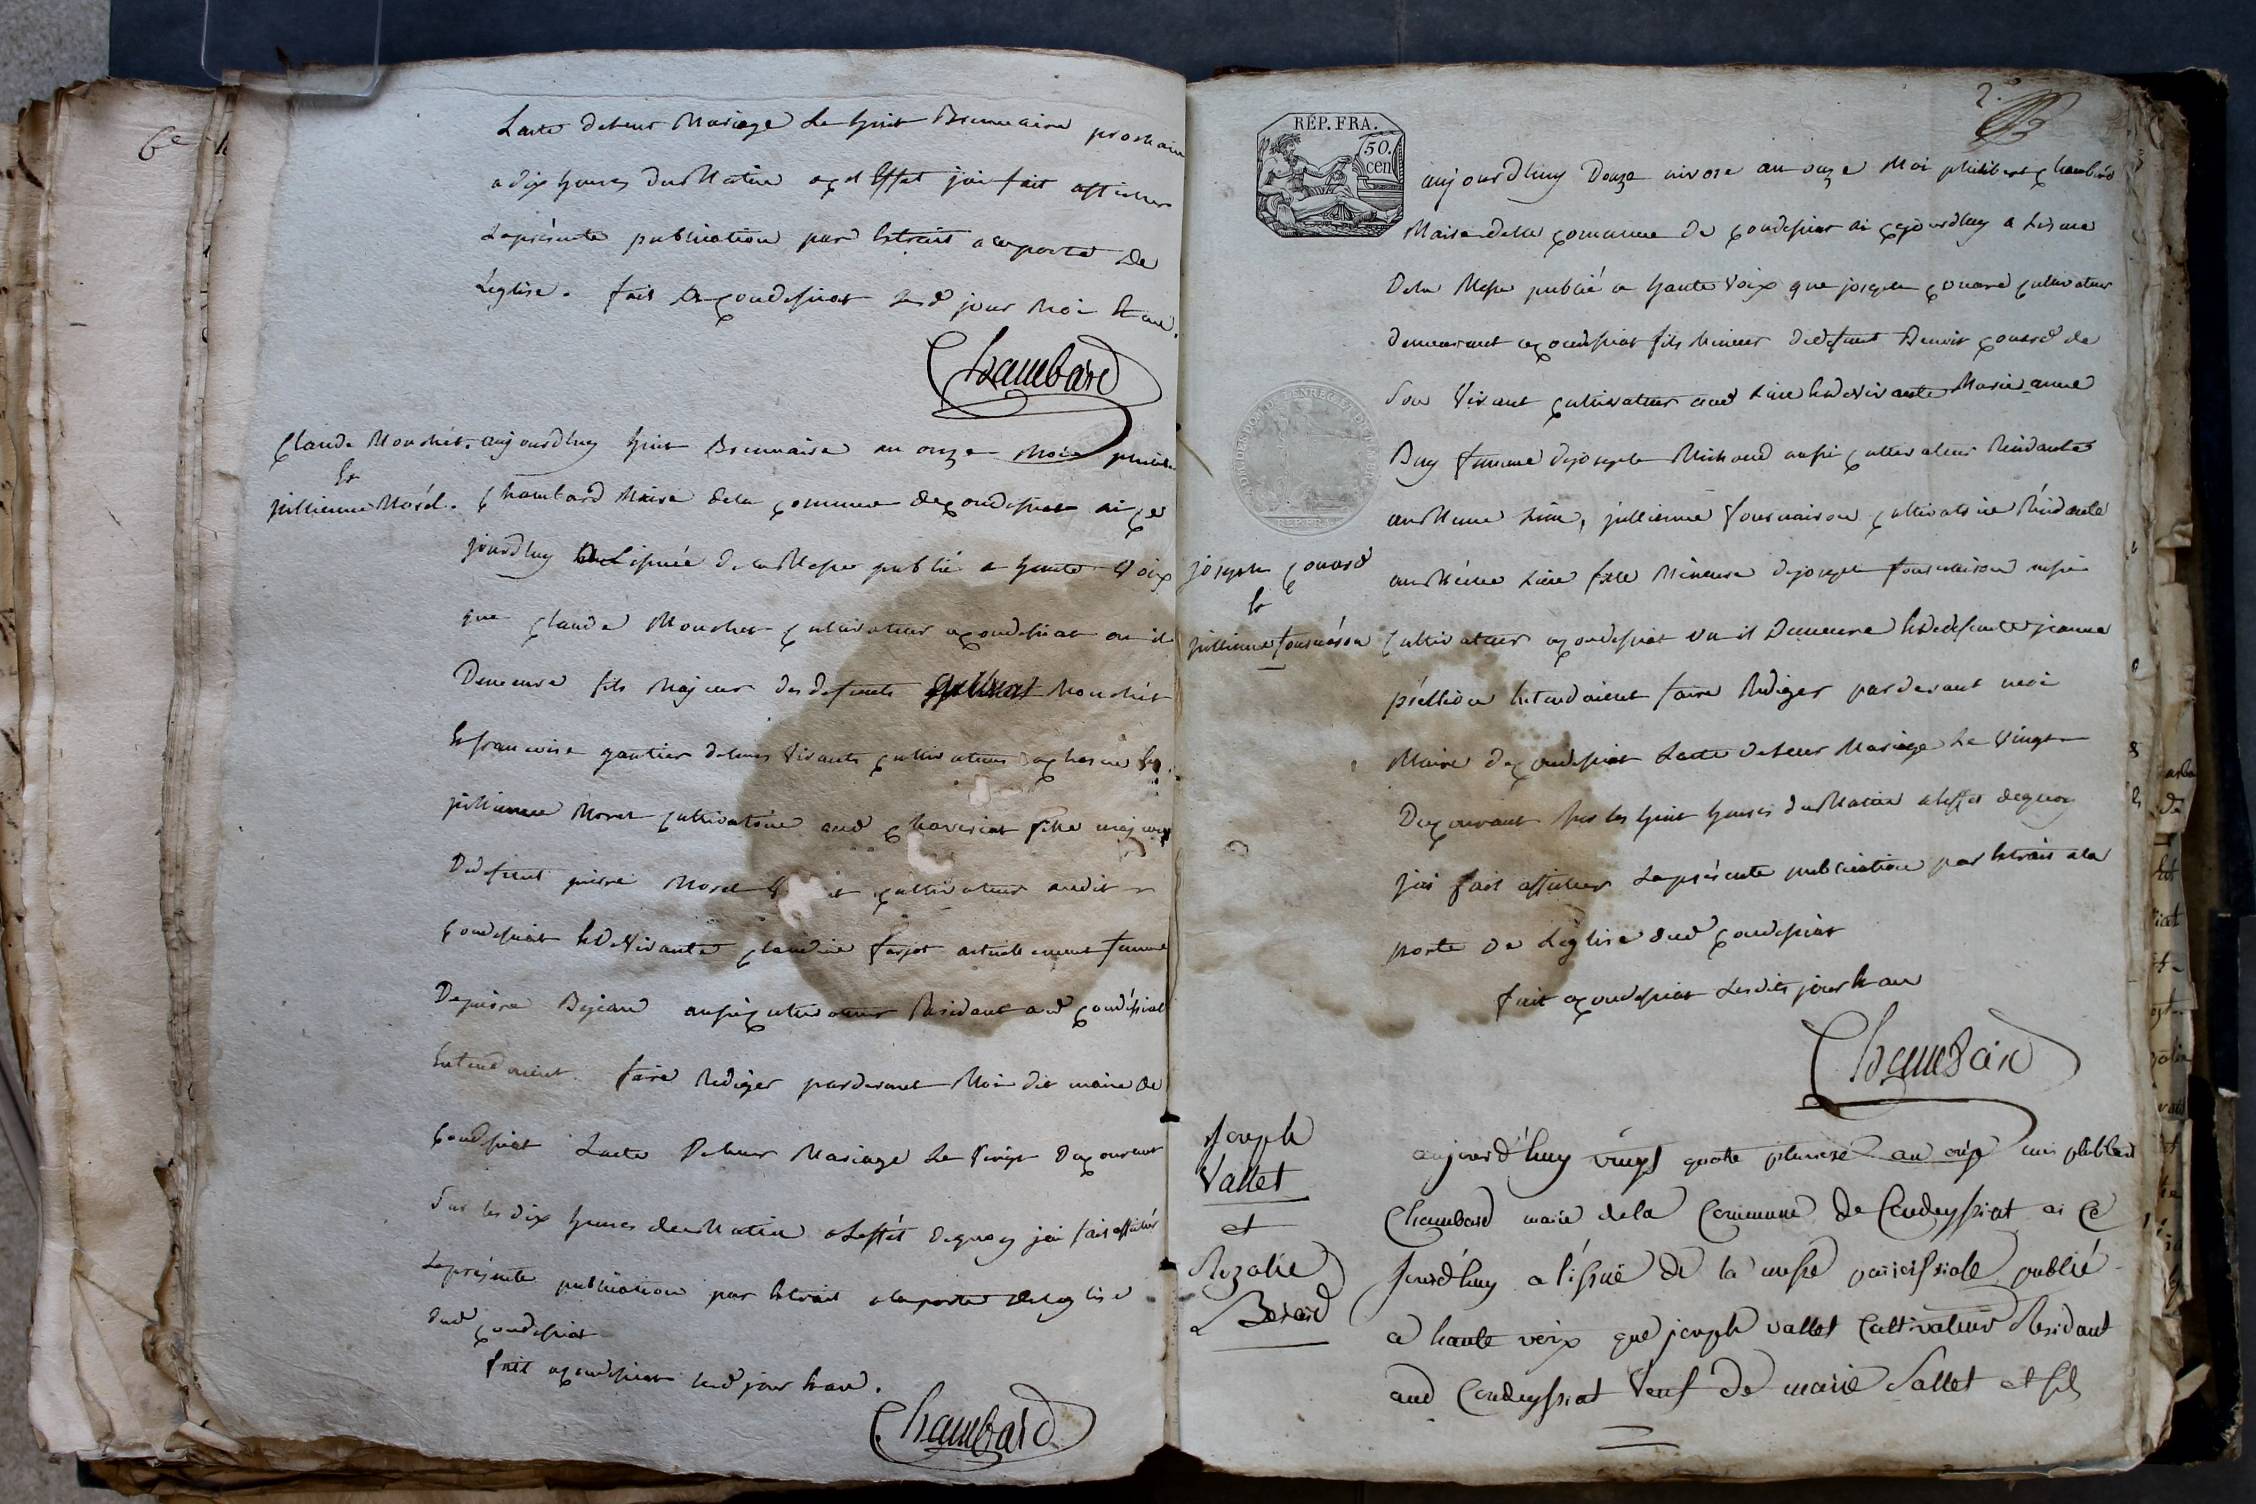 Lacte deleur Mariage Le huit Brumaire prochain
a dix heures du Matin a cet Effet jai fait afficher
Laprésente publication par Extrait a la porte de
Leglise. fait a Condessiat Led jour Moi et an.
Chambard
Claude Mouchet.
Et
jullienne Morél.
aujourdhuy huit Brumaire an onze Moi philibe
Chambard Maire dela Commune de Condessiat ai Ce
jourdhuy a Lissuée de la Messe publié a haute Voix
que Claude Mouchet Cultivateur a Condessiat ou il
Demeure fils Majeur des defunts Mouchét
Et francoise gautier deleurs Vivants Cultivateurs
jullienne Morel Cultivatrice aud Chaveriat fille majeure
De defunt pierre Morel Cultivateur audit
Condessiat Et de Vivante Claudine farjot actuellement femme
De pierre Bejean aussi Cultivateur Residant aud Condéssiat
Entendoient faire Rediger pardevant Moi dit maire de
Condessiat Lacte Deleur Mariage Le Vingt Du Courant
Sur les dix heures du Matin a Leffét dequoy jai fait afficher
Laprésente publication par Extrait a la porte de Leglise
dud Condessiat
fait a Condessiat Led jour et an.
Chambard
2.e
RÉP. FRA.
50.
cen
aujourdhuy Douze nivose an onze Moi philibert Chambard
Maire dela Commune de Condessiat ai Cejourdhuy a Lissue
De la Messe publié a haute Voix que joseph Gouard Cultivateur
demeurant a Condessiat fils Mineur de defunt Benoit Gouard de
Son Vivant Cultivateur aud Lieu Et de Vivante Marie anne
Buy femme de joseph Michaud aussi Cultivateur Residante
au Meme Lieu, jullienne fournaison Cultivatrice Résidante
au Méme Lieu fille Mineure de joseph fournaison aussi
joseph Gouard
Et
jullienne fournaison
Cultivateur a Condessiat ou il Demeure Et de defunte jeanne
Entendoient faire Rediger pardevant moi
Maire de Condessiat Lacte deleur Mariage Le Vingt
Du Courant Sur les huit heures du Matin a Leffet dequoy
jai fait afficher Laprésente publication par Extrait a la
porte de Léglise dud Condessiat
fait a Condessiat Lesdits jour et an
Chambard
Joseph
Vallet
et
Rozalie
Berard
aujourd'huy vingt quatre pluviose an onze moi philibert
Chambard maire dela Commune de Condeyssiat ai Ce
jourd'huy a l'issue de la messe paroissiale publié
a haute voix que joseph vallet Cultivateur Residant
aud Condeyssiat Veuf de marie Sallet et fils